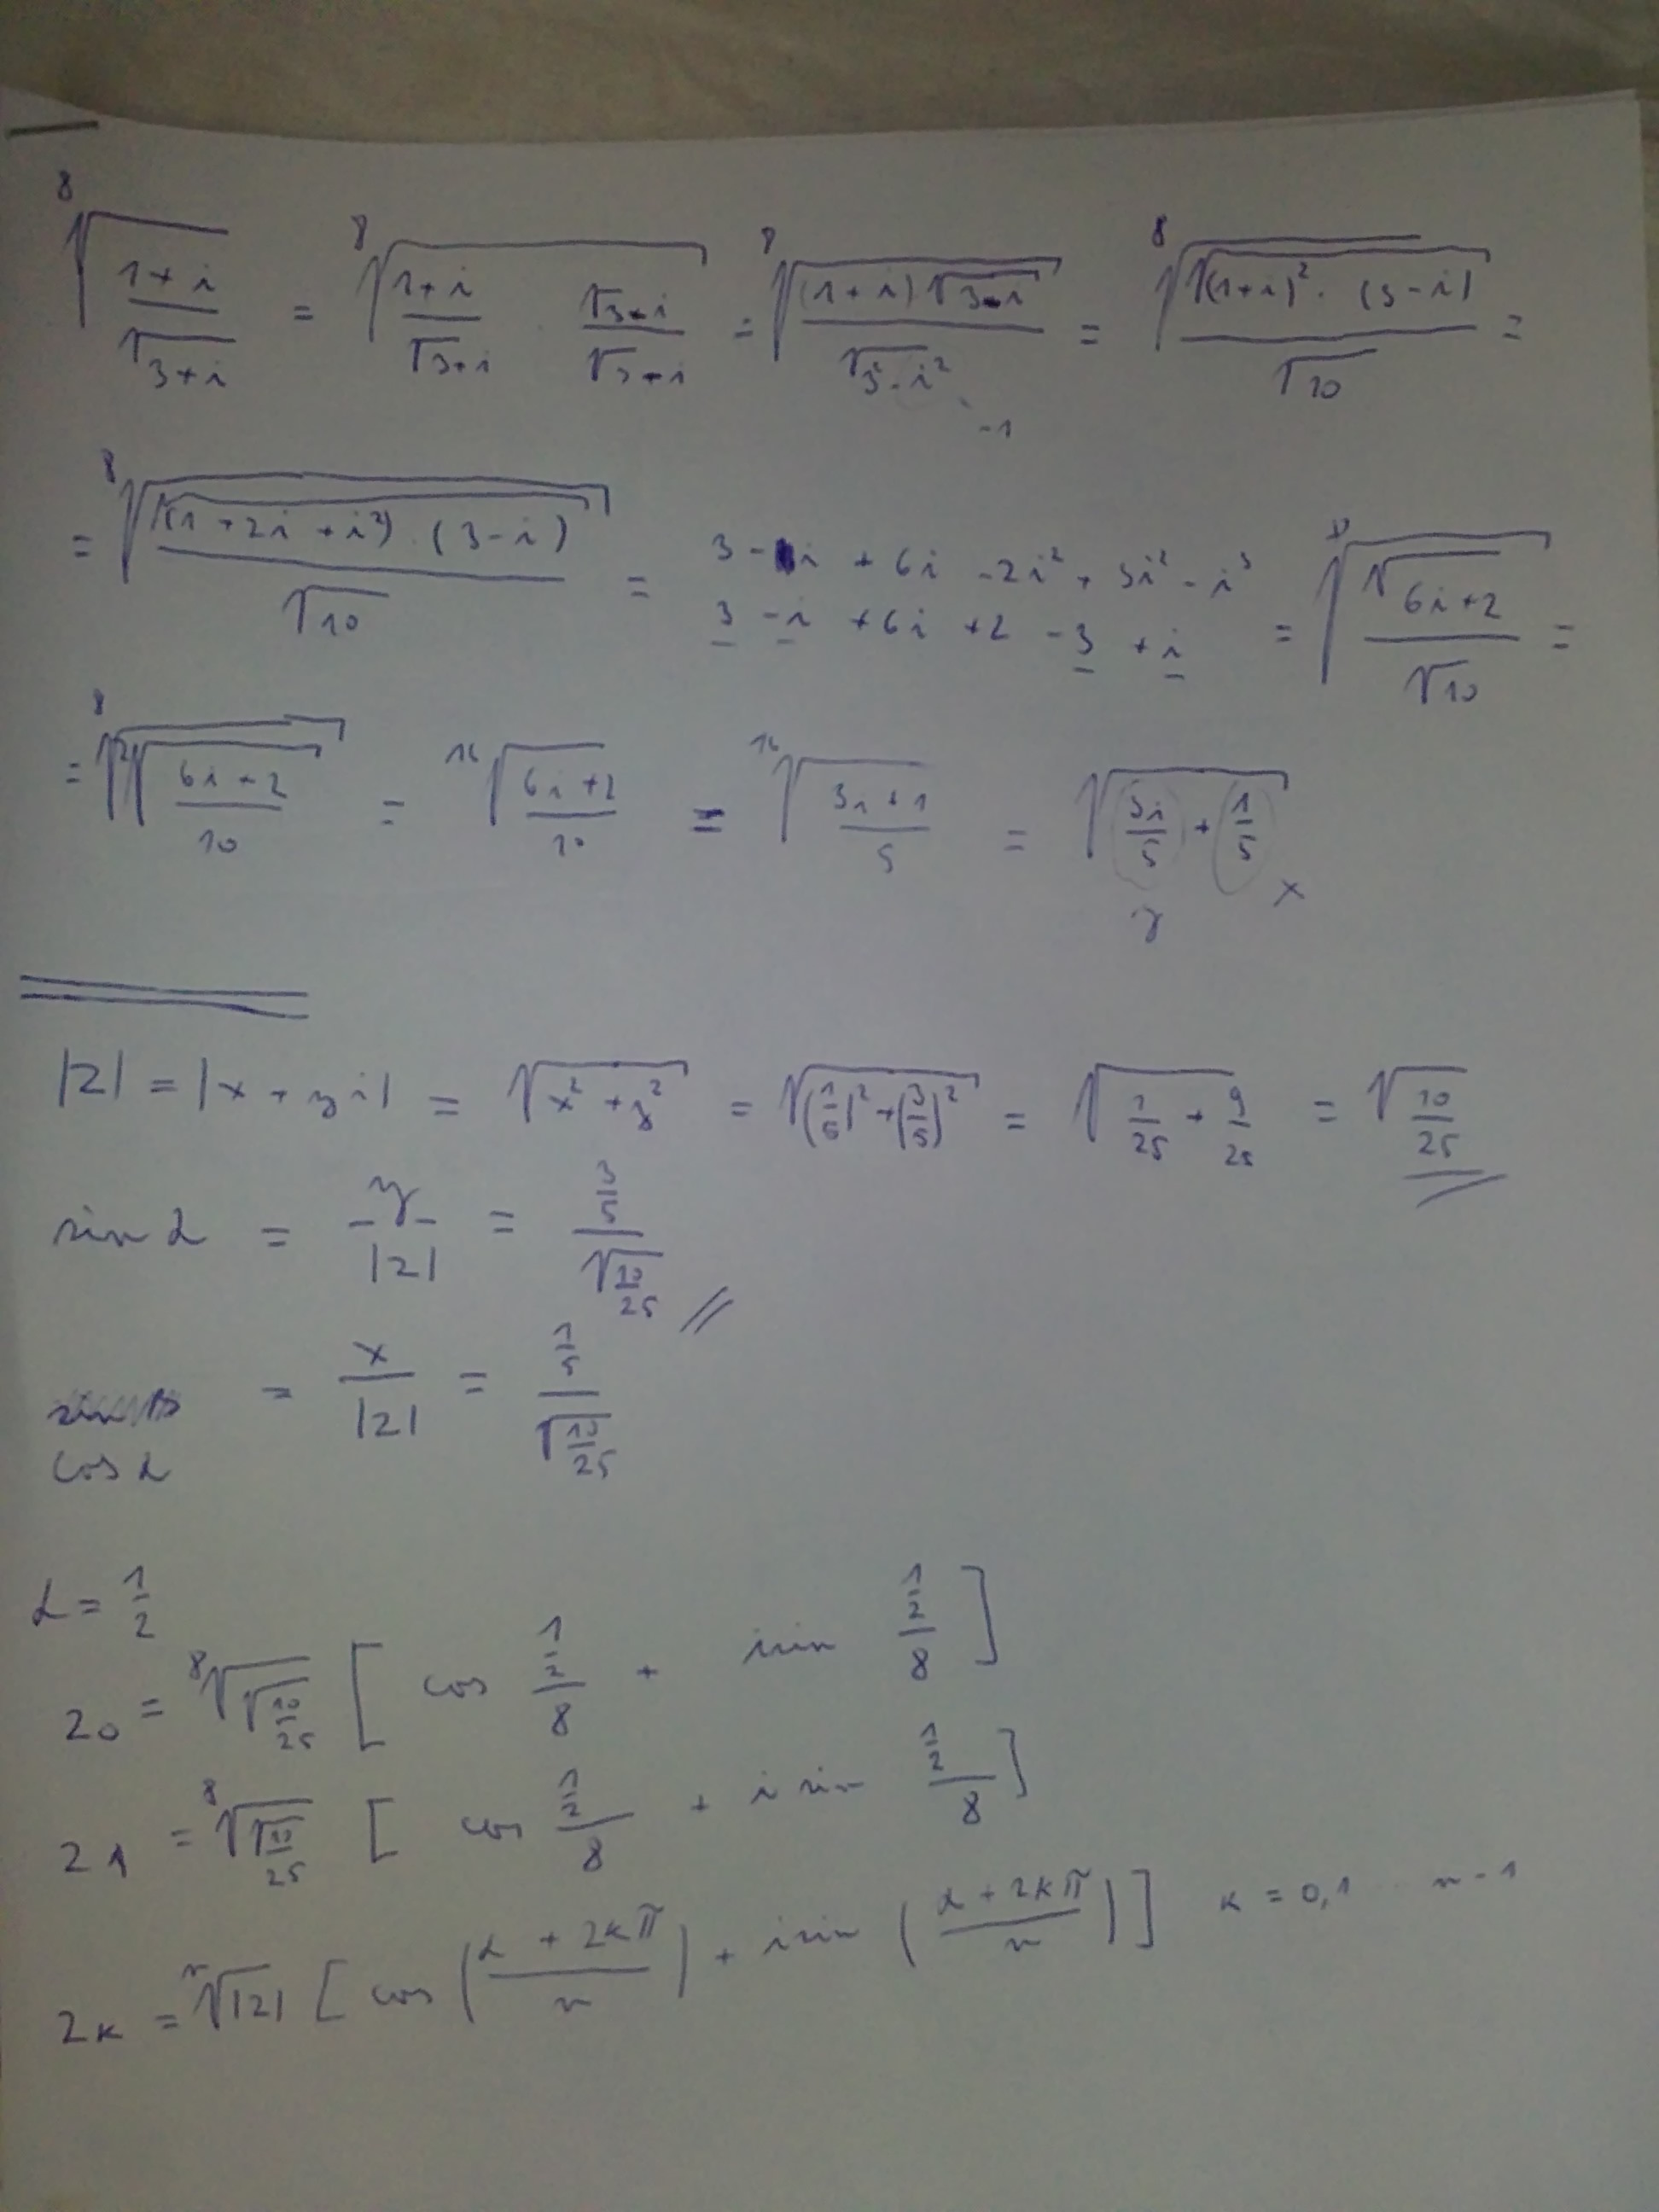 ⁸√((1+i)/√(3+i)) = ⁸√((1+i)/√(3+i) · √(3-i)/√(3-i)) = ⁸√((1+i)√(3-i)/√(3²-i²)) = ⁸√(√((1+i)²·(3-i))/√10) =
-1
= ⁸√(√((1+2i+i²)·(3-i))/√10) = 3-i+6i-2i²+3i²-i³
3-i+6i+2-3+i = ⁸√(√(6i+2)/√10) =
= ⁸√(²√((6i+2)/10)) = ¹⁶√((6i+2)/10) = ¹⁶√((3i+1)/5) = √(3i/5 + 1/5)
y x
|z| = |x+yi| = √(x²+y²) = √((1/5)²+(3/5)²) = √(1/25+9/25) = √(10/25)
sin α = y/|z| = (3/5)/√(10/25)
= x/|z| = (1/5)/√(10/25)
cos α
α = 1/2
z0 = ⁸√(√(10/25)) [ cos (1/2)/8 + i sin (1/2)/8 ]
z1 = ⁸√(√(10/25)) [ cos (1/2)/8 + i sin (1/2)/8 ]
zk = ⁿ√|z| [ cos ((α+2kπ)/n) + i sin ((α+2kπ)/n) ] k = 0,1 .. n-1